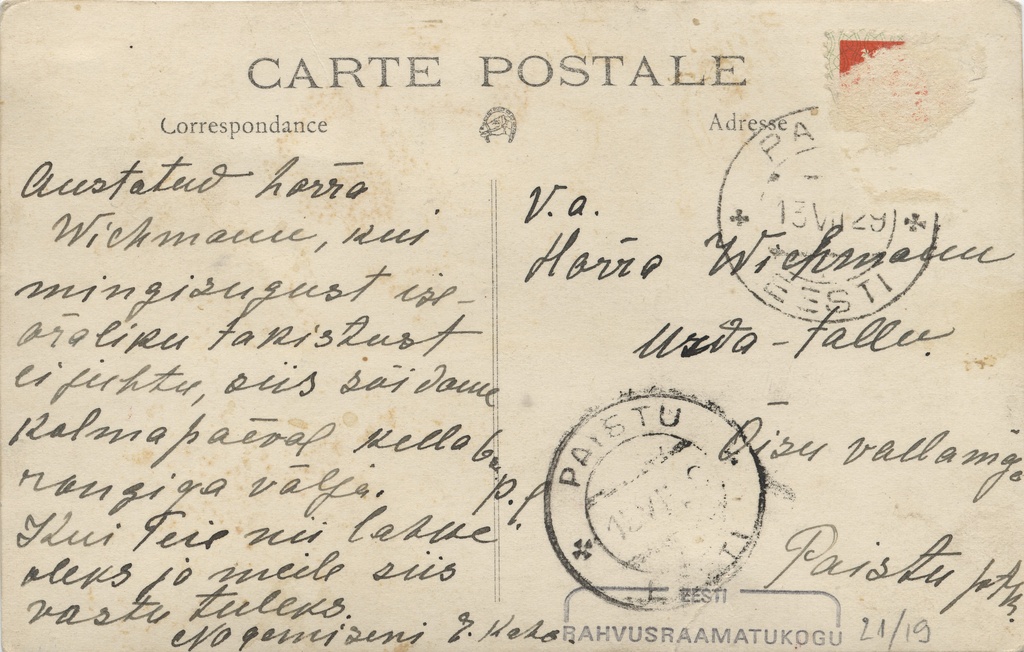 CARTE POSTALE
Correspondance
Adresse
Austatud härra
Wichmann, kui
mingisugust ise-
äraliku takistust
ei juhtu, siis sõidame
kolmapäeval kella 6
rongiga välja. p.l.
Kui Teie nii lahke
oleks ja meile siis
vastu tuleks.
Nägemiseni E. Kaho.
V.a.
Härra Wichmann
Uzda-tallu.
Õisu vallamaja
Paistu
PAI
13 VII 29
EESTI
PAISTU
EESTI
RAHVUSRAAMATUKOGU
21/19